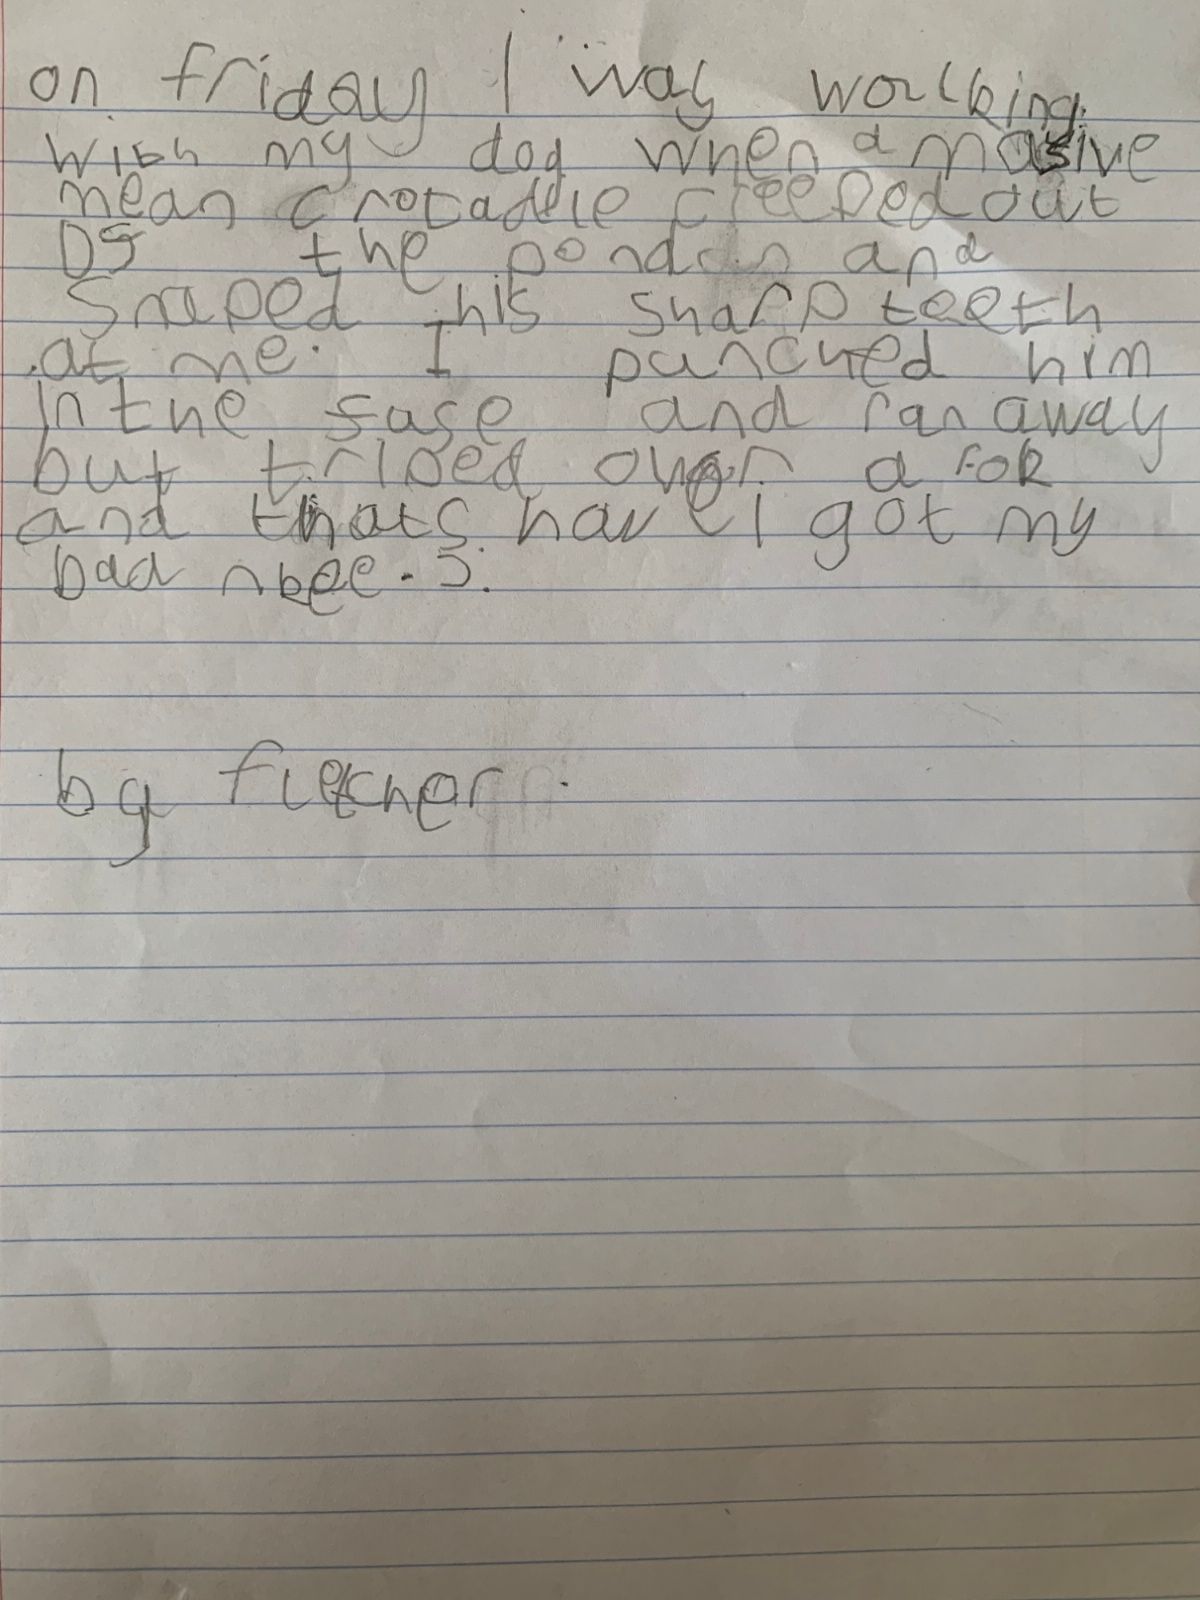 on friday I was wallking
with my dog when a masive
mean crocaddile creeped out
of the pond and
snaped his sharp teeth
at me. I punched him
in the fase and ran away
but triped over a rok
and thats how I got my
bad nkee.s.
by fletcher.